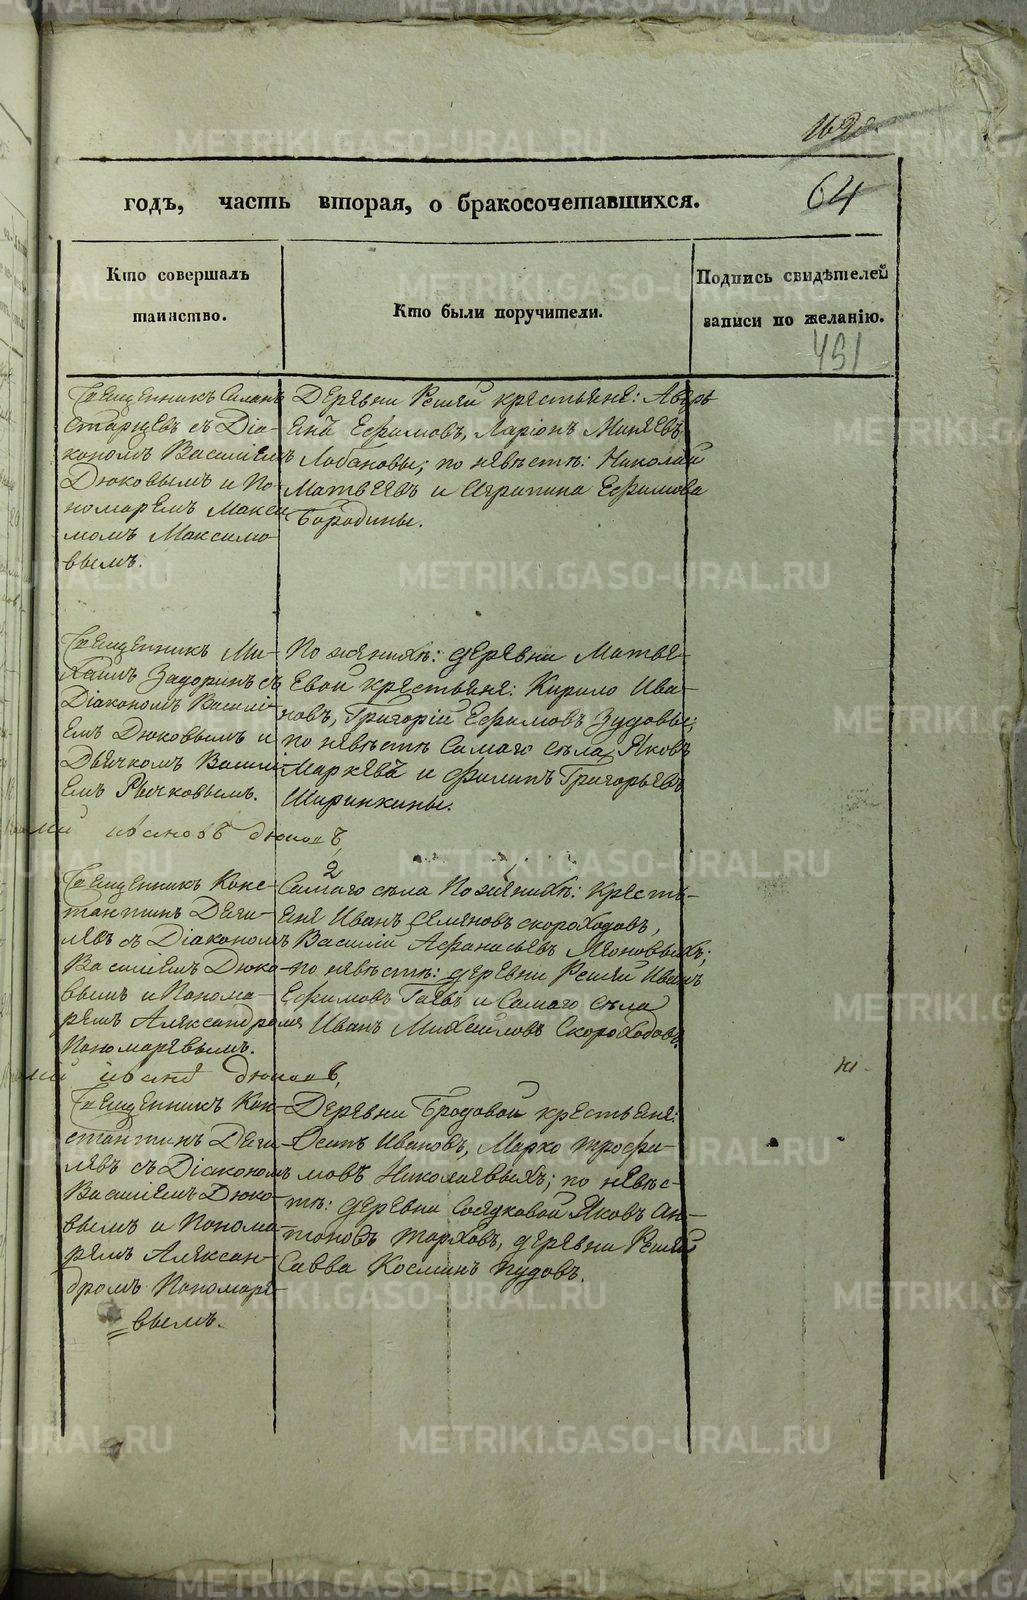 162
64
годъ, часть вторая, о бракосочетавшихся.
Кто совершалъ
таинство.
Кто были поручители.
Подпись свидѣтелей
записи по желанію.
491
Священникъ
Старцевъ съ Діа-
кономъ Василіемъ
Дюковымъ и По-
номаремъ Макси
момъ Максимо-
вымъ.
Деревни Решей крестьяне: Аверь
яній Ефимовъ, Ларіонъ Миняевъ
Лобановы; по невѣстѣ: Николай
Матвѣевъ и Агрипина Ефимова
Бородины.
Священникъ Ми-
хаилъ Задоринъ съ
Діакономъ Василі-
емъ Дюковымъ и
Дьячкомъ Василі-
емъ Рычковымъ.
По женихѣ: деревни Матве-
евой крестьяне: Кирило Ива-
новъ, Григорій Ефимовъ Зудовы;
по невѣстѣ Самаго села Яковъ
Маркевъ и Филипъ Григорьевъ
Ширинкины.
ивановъ дюковъ
2
Священникъ Конс-
тантинъ Деги-
левъ съ Діакономъ
Василіемъ Дюко-
вымъ и Понома-
ремъ Александромъ
Пономаревымъ.
Самаго села По женихѣ: кресть-
яне Иванъ Семеновъ скороходовъ,
Василій Афанасьевъ
по невѣстѣ: деревни Решей Иванъ
Ефимовъ Гаевъ и Самаго села
Иванъ Михайловъ Скороходовъ.
дюковъ
Священникъ Кон-
стантинъ Деги-
левъ съ Діакономъ
Василіемъ Дюко-
вымъ и Понома-
ремъ Алексан-
дромъ Пономаре-
вымъ.
Деревни Бродовой крестьяне:
Осипъ Ивановъ, Марко Трофи-
мовъ Николаевыхъ; по невѣс-
тѣ: деревни Соседковой Яковъ Ан-
тоновъ Торховъ, деревни Решей
Савва Косминъ Пудовъ.
METRIKI.GASO-URAL.RU